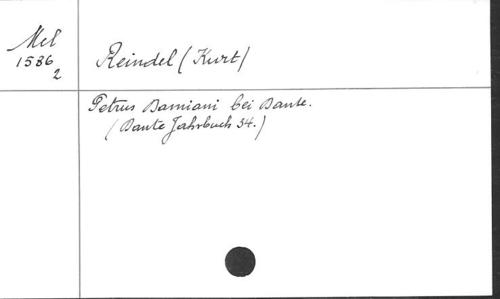 Mel
1586
2
Reindel (Kurt)
Petrus Damiani bei Dante.
(Dante Jahrbuch 34.)